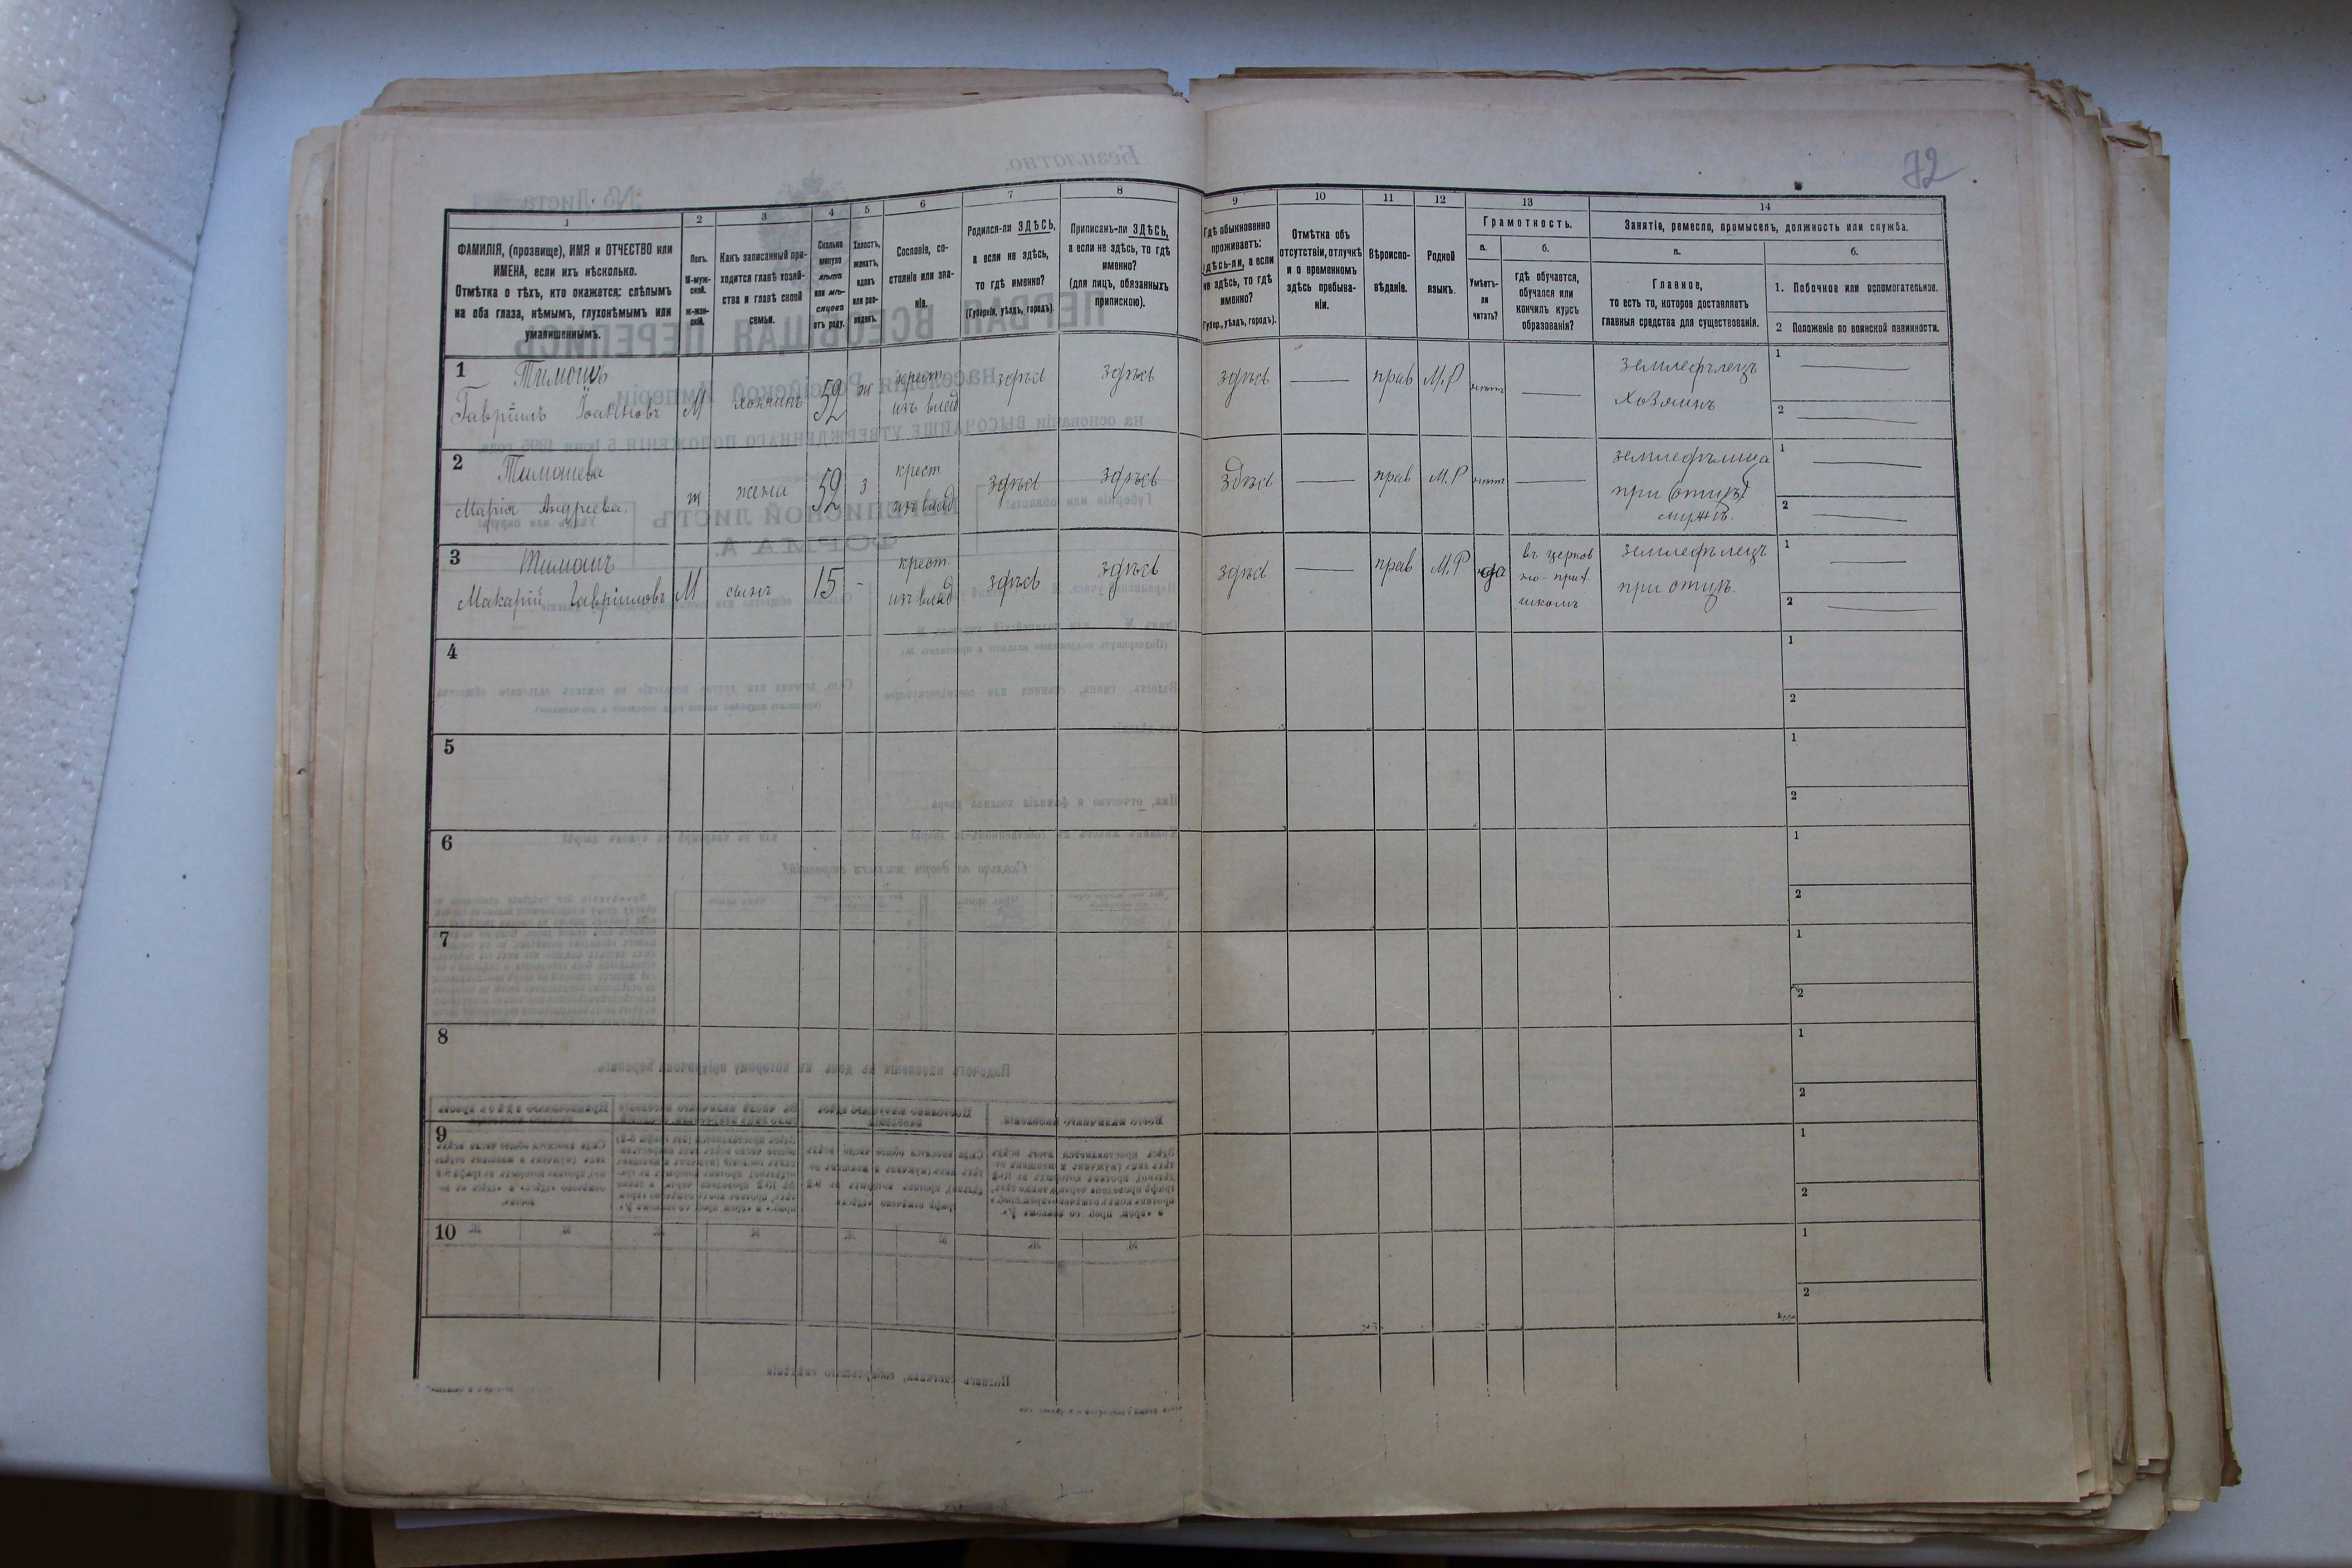 72
1
2
3
4
5
6
7
8
9
10
11
12
13
14
ФАМИЛІЯ, (прозвище), ИМЯ и ОТЧЕСТВО или
ИМЕНА, если ихъ нѣсколько.
Отмѣтка о тѣхъ, кто окажется: слѣпымъ
на оба глаза, нѣмымъ, глухонѣмымъ или
умалишеннымъ.
Полъ.
М-муж-
ской.
Ж-жен-
скій.
Какъ записанный при-
ходится главѣ хозяй-
ства и главѣ своей
семьи.
Сколько
минуло
лѣтъ
или мѣ-
сяцевъ
отъ роду.
Холостъ,
женатъ,
вдовъ
или раз-
веденъ.
Сословіе, со-
стояніе или зва-
ніе.
Родился-ли ЗДѢСЬ,
а если не здѣсь,
то гдѣ именно?
(Губернія, уѣздъ, городъ).
Приписанъ-ли ЗДѢСЬ,
а если не здѣсь, то гдѣ
именно?
(для лицъ, обязанныхъ
припискою).
Гдѣ обыкновенно
проживаетъ:
здѣсь-ли, а если
не здѣсь, то гдѣ
именно?
(Губер., уѣздъ, городъ).
Отмѣтка объ
отсутствіи, отлучкѣ
и о временномъ
здѣсь пребыва-
ніи.
Вѣроиспо-
вѣданіе.
Родной
языкъ.
Грамотность.
а.
Умѣетъ-
ли
читать?
б.
гдѣ обучается,
обучался или
кончилъ курсъ
образованія?
Занятіе, ремесло, промыселъ, должность или служба.
а.
Главное,
то есть то, которое доставляетъ
главныя средства для существованія.
б.
1. Побочное или вспомогательное.
2 Положеніе по воинской повинности.
1 Тимошъ
Гавріилъ Іоанновъ М хозяинъ 52 ж крест. изъ влад здѣсь здѣсь здѣсь — прав М.Р нѣтъ — земледѣлецъ
хозяинъ
1 —
2 —
2 Тимошева
Марія Андреева. ж жена 52 з крест. изъ влад здѣсь здѣсь здѣсь — прав М.Р нѣтъ — земледѣлица
при (отцѣ)
мужѣ.
1 —
2 —
3 Тимошъ
Макарій Гавріиловъ М сынъ 15 - крест. изъ влад здѣсь здѣсь здѣсь — прав М.Р да въ церков
но-при.
школѣ
земледѣлецъ
при отцѣ.
1 —
2 —
4
1
2
5
1
2
6
1
2
7
1
2
8
1
2
9
1
2
10
1
2